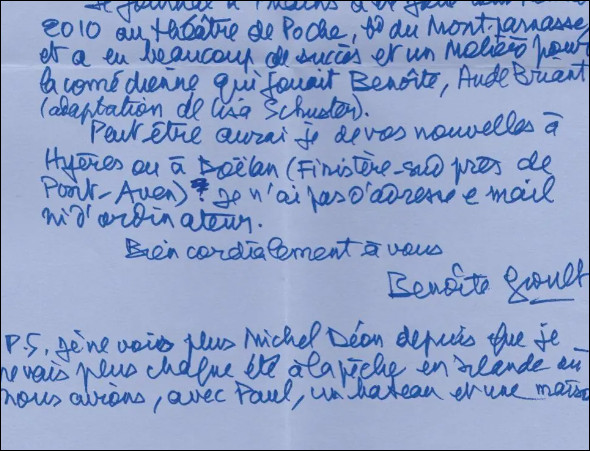 2010 au théâtre de Poche, Bd du Montparnasse
et a eu beaucoup de succès et un Molière pour
la comédienne qui jouait Benoîte, Aude Briant
(adaptation de Lisa Schuster).
Peut-être aurai je de vos nouvelles à
Hyères ou à Doëlan (Finistère-sud près de
Pont-Aven)? Je n'ai pas d'adresse e mail
ni d'ordinateur.
Bien cordialement à vous
Benoîte Groult
P.S. Je ne vois plus Michel Déon depuis que je
ne vais plus chaque été à la pêche en Irlande où
nous avions, avec Paul, un bateau et une maiso